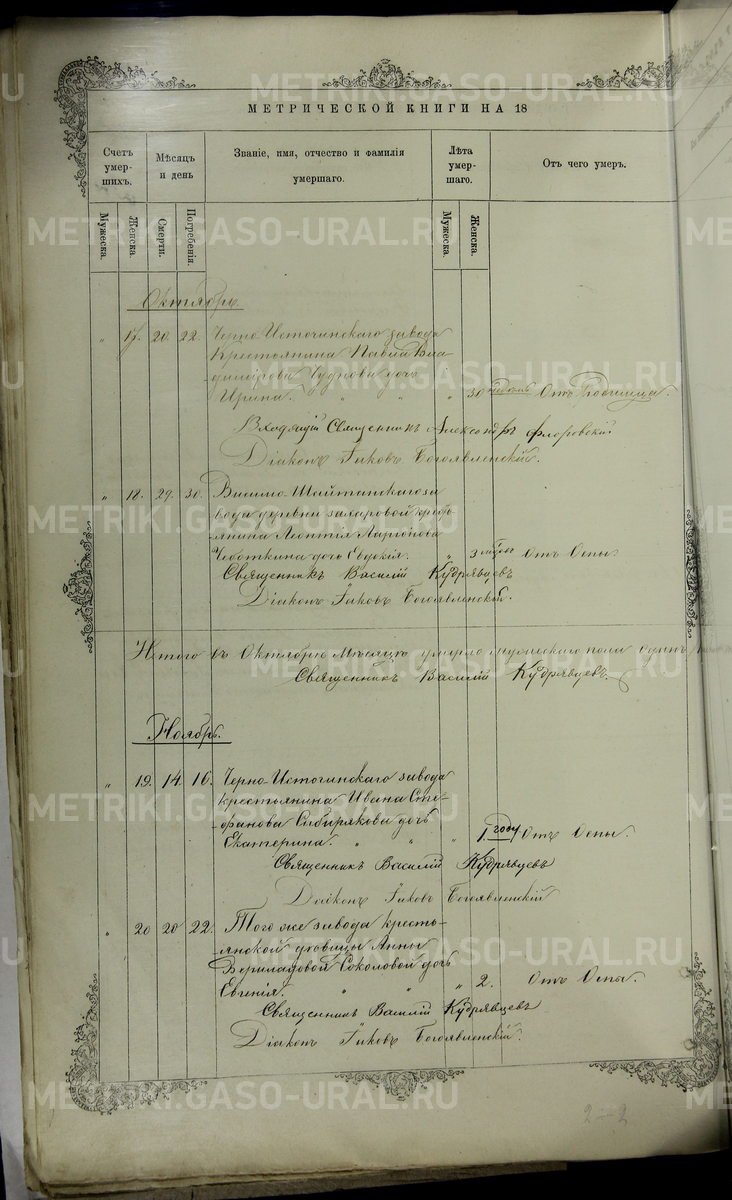 МЕТРИЧЕСКОЙ КНИГИ НА 18
Счетъ умер-шихъ.
Мѣсяцъ и день
Званіе, имя, отчество и фамилія умершаго.
Лѣта умер-шаго.
Отъ чего умеръ.
Мужеска.
Женска.
Смерти.
Погребенія.
Мужеска.
Женска.
Октябрь.
" 17. 20. 22. Черно-Источинскаго завода
крестьянина Павла Вла-
димірова Чудкова дочь
Ирина. " " " 30 недѣль Отъ Родимца.
Входящій Священникъ Александръ Флоровскій.
Діаконъ Іаковъ Богоявленскій.
" 18. 29. 30. Висимо-Шайтанскаго за-
вода деревни Захаровой кресть-
янина Леонтія Ларіонова
дочь Евдокія. " 3 Отъ Оспы.
Священникъ Василій Кудрявцевъ
Діаконъ Іаковъ Богоявленскій.
Итого въ Октябрѣ Мѣсяцѣ умерло пола
Священникъ Василій Кудрявцевъ.
Ноябрь.
" 19. 14. 16. Черно-Источинскаго завода
крестьянина Ивана Сте-
фанова Сибирякова дочь
Екатерина. " " " 1. году Отъ Оспы.
Священникъ Василій Кудрявцевъ
Діаконъ Іаковъ Богоявленскій
" 20 20 22. Того же завода кресть-
янской Анны
Соколовой дочь
Евгенія. " " " 2. Отъ Оспы.
Священникъ Василій Кудрявцевъ
Діаконъ Іаковъ Богоявленскій.
2-2
METRIKI.GASO-URAL.RU